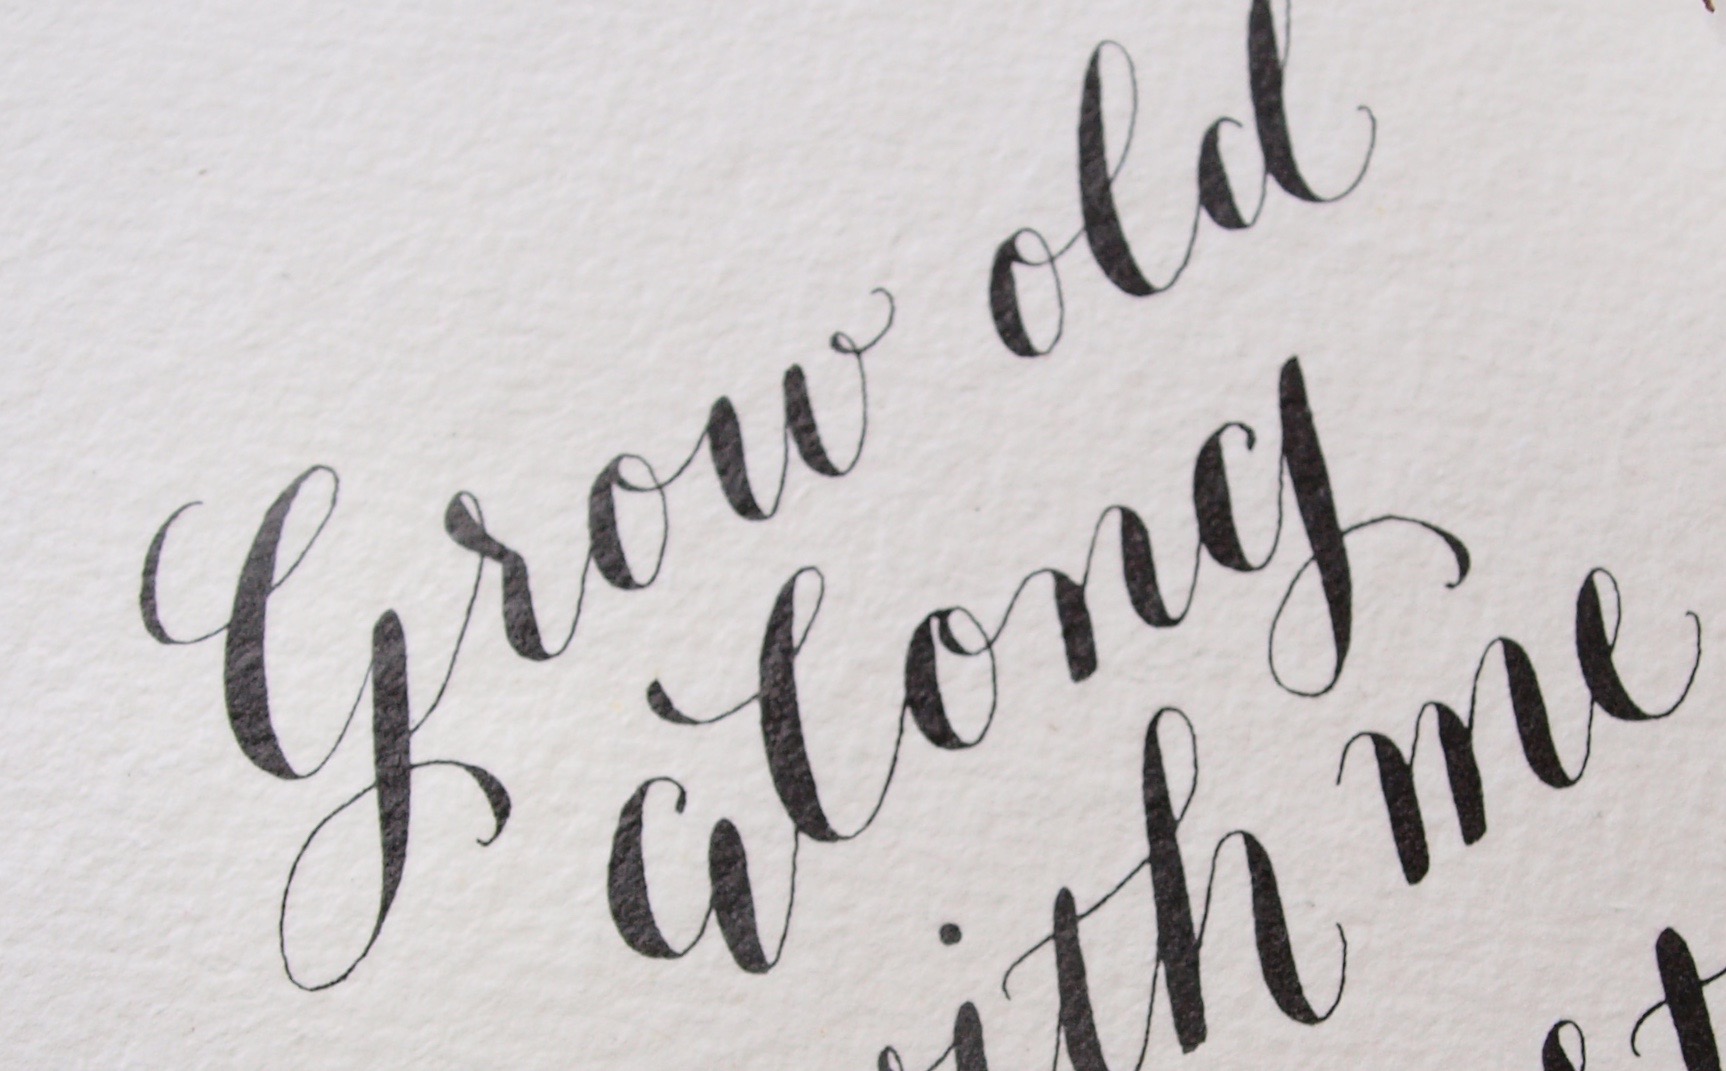 Grow old
along
with me